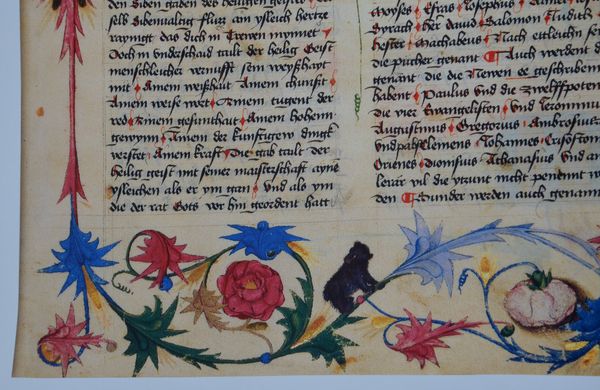 den Siben gaben des heiligen geists
selb Sibenualtig flusz ain ysleich hertze
raynigt das dich in Trewen mynnet
Doch in vnderschaid tailt der heilig Geist
menschleicher vernufft sein weyszhayt
mit Ainem weiszhait Ainem chunst
Ainem weise wort Ainem tugent der
red Ainem gesunthait Ainem hohenn
gewynn Ainem der kunfftigew dingk
verstet Ainem krafft Die gab tailt der
heilig geist mit seiner maisterschafft ayne
ysleichen als er ym gan vnd als ym
die der rat Gots vor hin geordent hatt
Moyses Esras Josephus
Syrach her david Salomon Judich
hester Machabeus Nach ettleichn
die pücher genant Auch werdent
genant die die Newen ee geschriben
habent Paulus Vnd die Zwelffpoten
die vier Ewangelisten Vnd Jeronimus
Augustinus Gregorius Ambrosius
Vnd pabst Clemens Johannes Crisostom
Orienes Dionisius Athanasius Vnd an
lerär vil die ytzunt nicht penennt
den Wunder werden auch genann